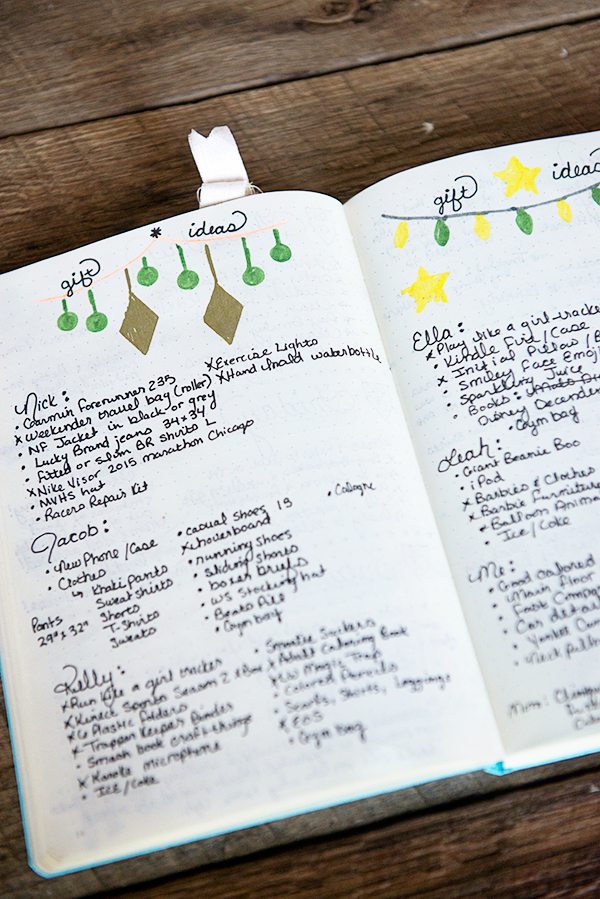 gift * ideas
Nick:
• Garmin forerunner 235
x Weekender travel bag (roller)
• NF Jacket in black or grey
• Lucky Brand jeans 34x34
• Fitted or slim BR shirts L
x Nike Visor 2015 marathon Chicago
• MVHS hat
• Racers Repair Kit
x Exercise Lights
x Hand held waterbottle
Jacob:
• New Phone/Case
• Clothes
↳ Khaki pants
Sweatshirts
Shorts
T-Shirts
Sweats
Pants
29" x 32"
• casual shoes 13
x hoverboard
• running shoes
• sliding shorts
• boxer briefs
• WS stocking hat
• Beats Pill
• Gym bag
• Cologne
Kelly:
x Run like a girl
x Kinect Season 2 x Box
x 6 Plastic Folders
x Trapper Keeper Binder
• Smash book craft things
x Karaoke microphone
• Ice/Coke
• Smartie
x Adult Coloring Book
x Magic
• Colored Pencils
• Scarfs, Shirts, Leggings
x EOS
• Gym bag
gift ideas
Ella:
x Play like a girl
• Kindle Fire/Case
x Initial Pillow
• Smiley Face Emoji
• Sparkling Juice
• Books:
Disney
• Gym bag
Leah:
• Giant Beanie Boo
• iPod
x Barbies & Clothes
x Barbie Furniture
x Balloon Animal
• Ice/Coke
Me:
• Good colored
• Main Floor
•
• Car detail
•
• Neck pillow
Mom: